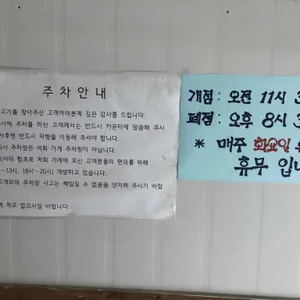 주차안내
고기를 찾아주신 고객여러분께 깊은 감사를 드립니다.
주차를 하신 고객께서는 반드시 카운터에 말씀해 주시
반드시 차량을 이동해 주셔야 합니다.
주차장은 저희 가게 주차장이 아닙니다.
협조로 저희 가게에 오신 고객분들의 편의를 위해
~13시, 18시~20시) 개방하고 있습니다.
주차장 사고는 책임질 수 없음을 양지해 주시기 바랍
착오 없으시길 바랍니다.
개점: 오전 11시 3
폐점: 오후 8시 3
* 매주 화요일
휴무 입니